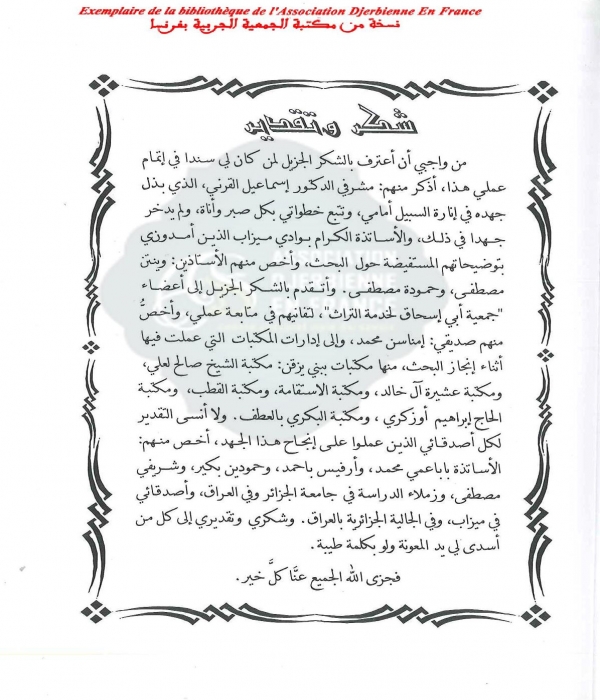 Exemplaire de la bibliothèque de l'Association Djerbienne En France
نسخة من مكتبة الجمعية الجربية بفرنسا
شكر وتقدير
من واجبي أن أعترف بالشكر الجزيل لمن كان لي سندا في إتمام
عملي هذا، أذكر منهم: مشرفي الدكتور إسماعيل القرني، الذي بذل
جهده في إنارة السبيل أمامي، وتتبع خطواتي بكل صبر وأناة، ولم يدخر
جهدا في ذلك، والأساتذة الكرام بوادي ميزاب الذين أمدوزي
بتوضيحاتهم المستفيضة حول البحث، وأخص منهم الأستاذين: وينتن
مصطفى، وحمودة مصطفى. وأتقدم بالشكر الجزيل إلى أعضاء
"جمعية أبي إسحاق لخدمة التراث"، لتفانيهم في متابعة عملي، وأخصُّ
منهم صديقي: إمناسن محمد، وإلى إدارات المكتبات التي عملت فيها
أثناء إنجاز البحث، منها مكتبات ببني يزقن: مكتبة الشيخ صالح لعلي،
ومكتبة عشيرة آل خالد، ومكتبة الاستقامة، ومكتبة القطب، ومكتبة
الحاج إبراهيم أوزكري، ومكتبة البكري بالعطف. ولا أنسى التقدير
لكل أصدقائي الذين عملوا على إنجاح هذا الجهد، أخص منهم:
الأساتذة باباعمي محمد، وأرفيس باحمد، وحمودين بكير، وشريفي
مصطفى، وزملاء الدراسة في جامعة الجزائر وفي العراق، وأصدقائي
في ميزاب، وفي الجالية الجزائرية بالعراق. وشكري وتقديري إلى كل من
أسدى لي يد المعونة ولو بكلمة طيبة.
فجزى الله الجميع عنَّا كلَّ خير.
ASSOCIATION
DJERBIENNE
EN FRANCE